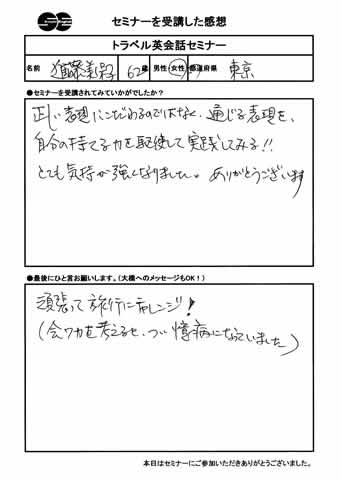 セミナーを受講した感想
トラベル英会話セミナー
名前 進藤 62歳 男性・女性 都道府県 東京
●セミナーを受講されてみていかがでしたか？
正しい表現にこだわるのではなく、通じる表現を、
自分の持てる力を駆使して実践してみる!!
とても気持が強くなりました。ありがとうございます
●最後にひと言お願いします。(大橋へのメッセージもOK！)
頑張って旅行にチャレンジ！
(会ワ力を考えると、つい憶病になっていました)
本日はセミナーにご参加いただきありがとうございました。